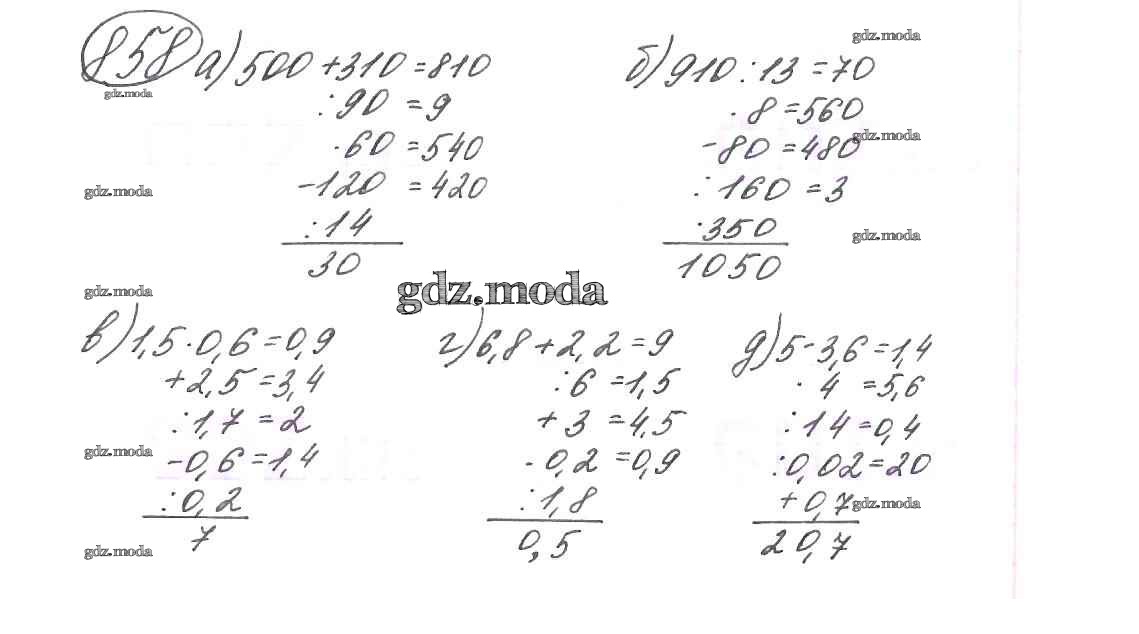 858 а) 500 + 310 = 810
: 90 = 9
· 60 = 540
- 120 = 420
: 14
30
б) 910 : 13 = 70
· 8 = 560
- 80 = 480
: 160 = 3
· 350
1050
в) 1,5 · 0,6 = 0,9
+ 2,5 = 3,4
: 1,7 = 2
- 0,6 = 1,4
: 0,2
7
г) 6,8 + 2,2 = 9
: 6 = 1,5
+ 3 = 4,5
· 0,2 = 0,9
: 1,8
0,5
д) 5 - 3,6 = 1,4
· 4 = 5,6
: 14 = 0,4
: 0,02 = 20
+ 0,7
20,7
gdz.moda
gdz.moda
gdz.moda
gdz.moda
gdz.moda
gdz.moda
gdz.moda
gdz.moda
gdz.moda
gdz.moda